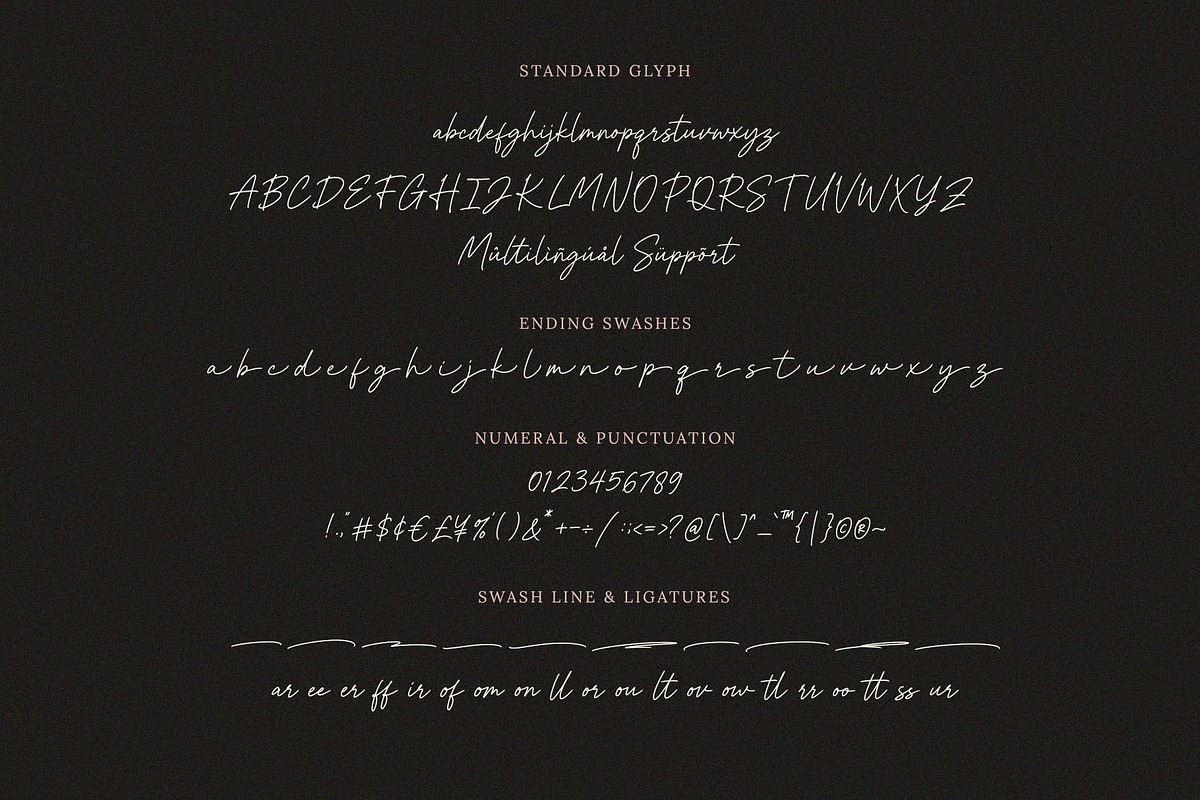 STANDARD GLYPH
abcdefghijklmnopqrstuvwxyz
ABCDEFGHIJKLMNOPQRSTUVWXYZ
Mûltilìñgúål Süppõrt
ENDING SWASHES
a b c d e f g h i j k l m n o p q r s t u v w x y z
NUMERAL & PUNCTUATION
0123456789
!.,"#$¢€£¥%'()&*+-÷/:;<=>?@[\]^_`™{|}©®~
SWASH LINE & LIGATURES
ar ee er ff ir of om on ll or ou lt ov ow tl rr oo tt ss ur